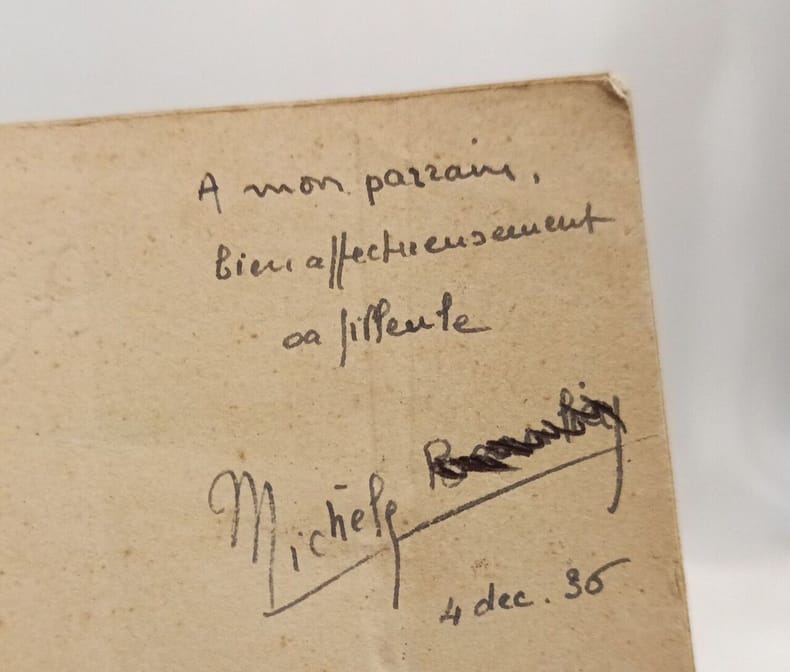 A mon parrain,
bien affectueusement
sa filleule
Michèle
4 dec. 36